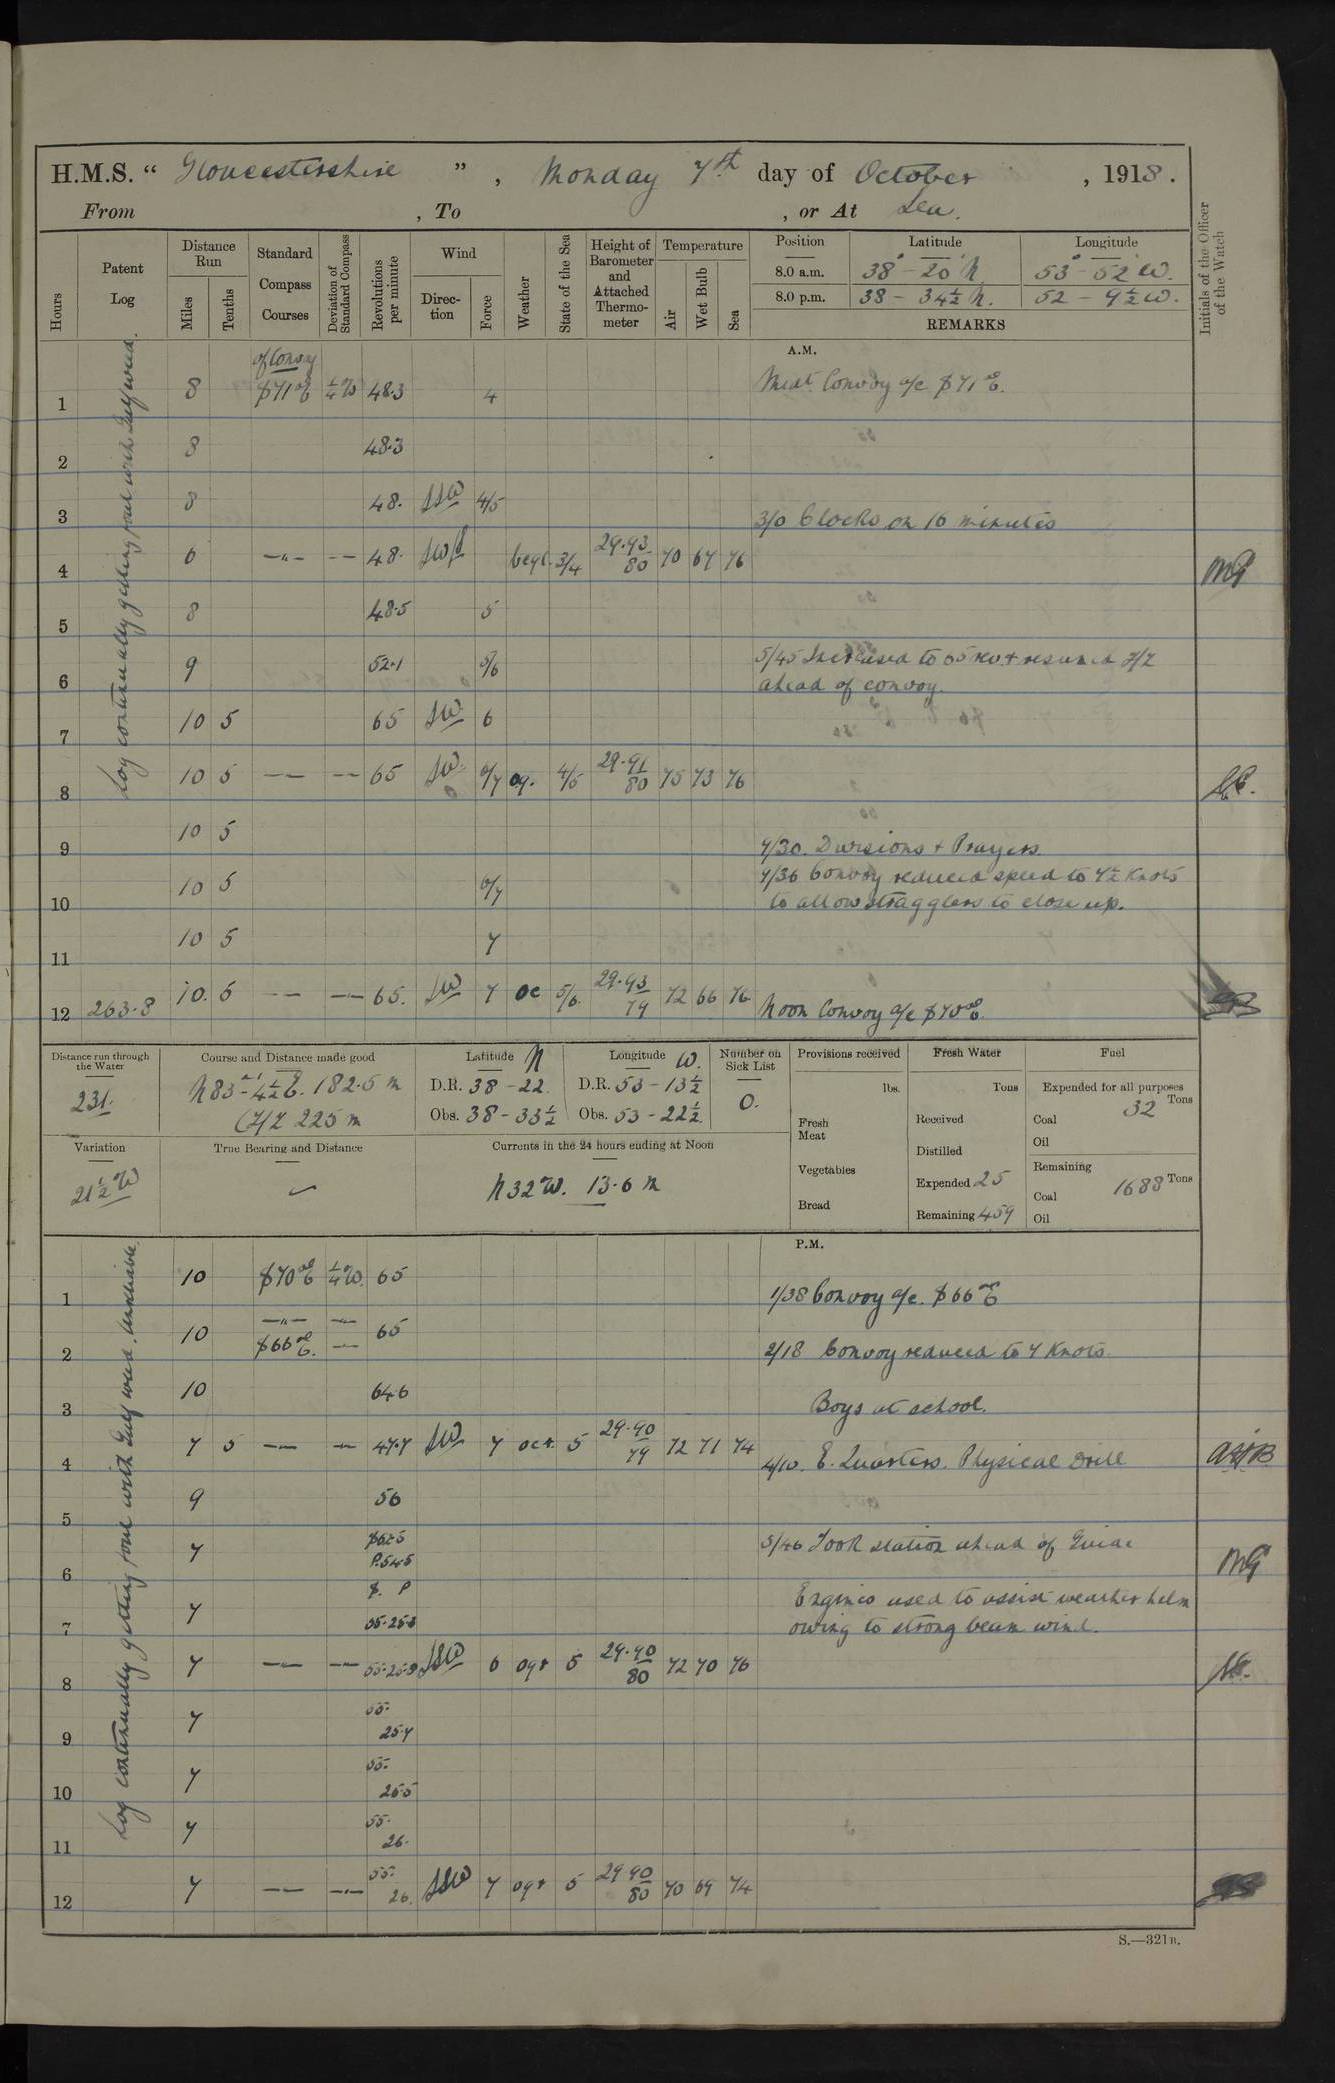 H.M.S. “ Gloucestershire ” , Monday 7th day of October , 1918.
From , To , or At Sea.
Hours
Patent Log
Distance Run
Miles
Tenths
Standard Compass Courses
Deviation of Standard Compass
Revolutions per minute
Wind
Direction
Force
Weather
State of the Sea
Height of Barometer and Attached Thermometer
Temperature
Air
Wet Bulb
Sea
Position Latitude Longitude
8.0 a.m. 38° - 20' N 53° - 52' W.
8.0 p.m. 38 - 34½ N. 52 - 9½ W.
REMARKS
Initials of the Officer of the Watch
A.M.
Log continually getting foul with Gulf weed.
of Convoy
1 8 S 71 E ¼ W 48.3 4 Midt Convoy a/c S 71° E.
2 8 48.3
3 8 48. SSW 4/5 3/0 Clocks on 16 minutes
4 6 —"— -- 48. 3/4 29.93/80 70 67 76 MG
5 8 48.5 5
6 9 52.1 5/6 5/45 Increased to 65 rev + resumed Z/Z
ahead of convoy.
7 10 5 65 SW 6
8 10 5 — — — — 65 SW 6/7 og. 4/5 29.91/80 75 73 76
9 10 5 9/30. Divisions + Prayers.
10 10 5 6/7 9/36 Convoy reduced speed to 7½ Knots
to allow stragglers to close up.
11 10 5 7
12 263.8 10. 5 — — — — 65. SW 7 oc 5/6. 29.93/79 72 66 76 Noon Convoy a/c S 70° E.
Distance run through the Water
231.
Course and Distance made good
N 83° - 4½' E. 182.5 m
(Z/Z 225 m
Latitude N
D.R. 38 - 22.
Obs. 38 - 33½
Longitude W.
D.R. 53 - 13½
Obs. 53 - 22½
Number on Sick List
0.
Provisions received
lbs.
Fresh Meat
Vegetables
Bread
Fresh Water
Tons
Received
Distilled
Expended 25
Remaining 459
Fuel
Expended for all purposes
Tons
Coal 32
Oil
Remaining
Coal 1688 Tons
Oil
Variation
21½ W
True Bearing and Distance
Currents in the 24 hours ending at Noon
N 32 W. 13.6 m
P.M.
Log continually getting foul with Gulf weed. Unreliable.
1 10 S 70° E ¼ W. 65 1/38 Convoy a/c. S 66° E
2 10 —"— —"— S 66° E. — 65 2/18 Convoy reduced to 7 Knots.
3 10 64.6 Boys at school.
4 7 5 — — — — 47.7 SW 7 5 29.90/79 72 71 74 4/10. E. Quarters. Physical Drill
5 9 56
6 7 P.54.5 5/46 Took station ahead of Guide MG
7 7 S. P Engines used to assist weather helm
owing to strong beam wind.
8 7 — — — — SSW 6 5 29.90/80 72 70 76
9 7 55. 25.7
10 7 55. 25.5
11 7 55. 26.
12 7 — — — — 55. 26. SSW 7 5 29.90/80 70 69 74
S.—321B.